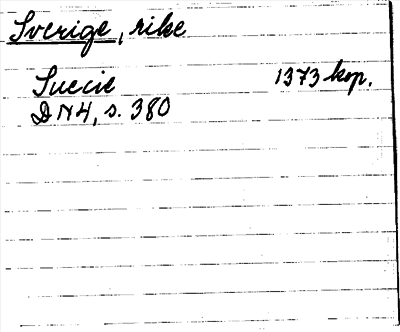 Sverige, rike
Suecie 1373 kop.
DN4, s. 380